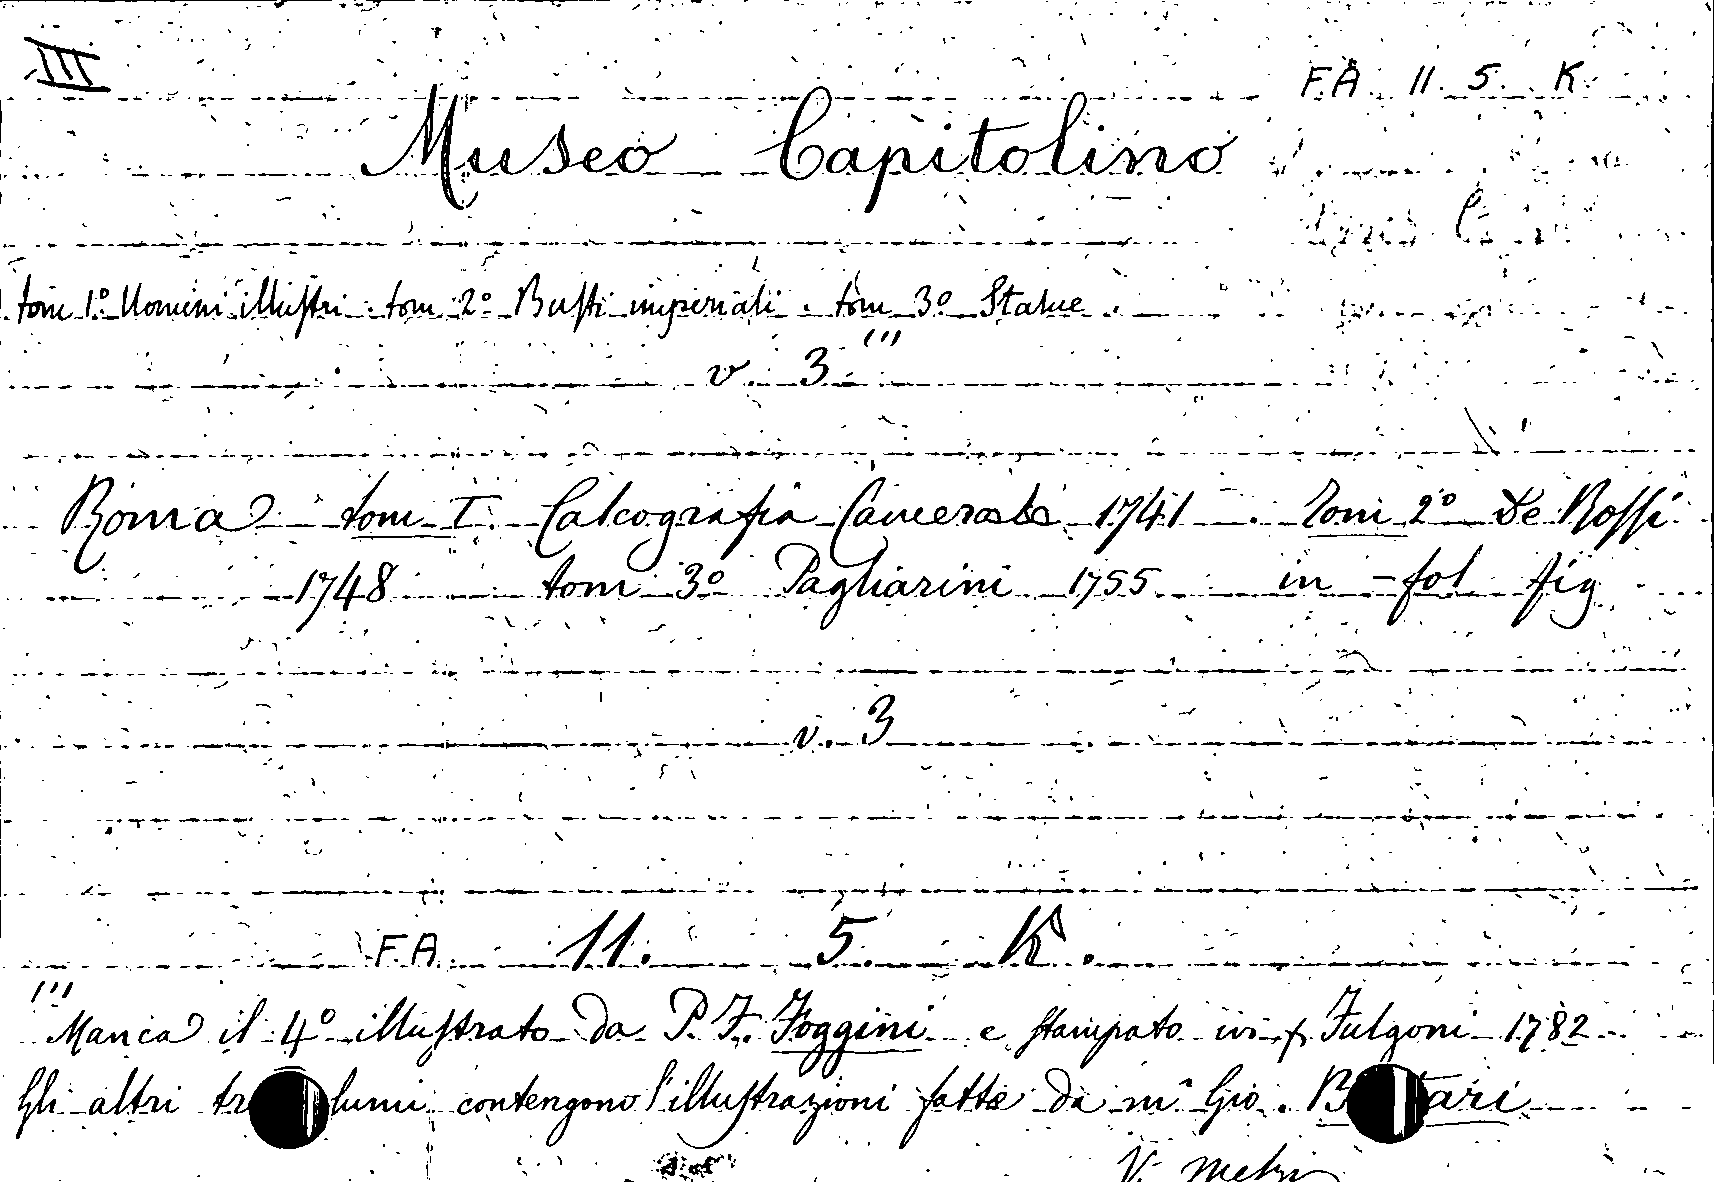 III
F.A. 11. 5. K.
Museo Capitolino
tom 1º Uomini illustri . tom 2º Busti imperiali . tom 3º Statue .
v. 3 (''')
Roma tom I. Calcografia Camerale 1741 . Tom 2º De Rossi
1748 tom 3º Pagliarini 1755 in fol. fig
v. 3
F.A. 11. 5. K.
''' Manca il 4º illustrato da P. F. Foggini e stampato ivi p Fulgoni 1782
Gli altri tr lumi contengono l'illustrazioni fatte da mr Gio. B tari
V.